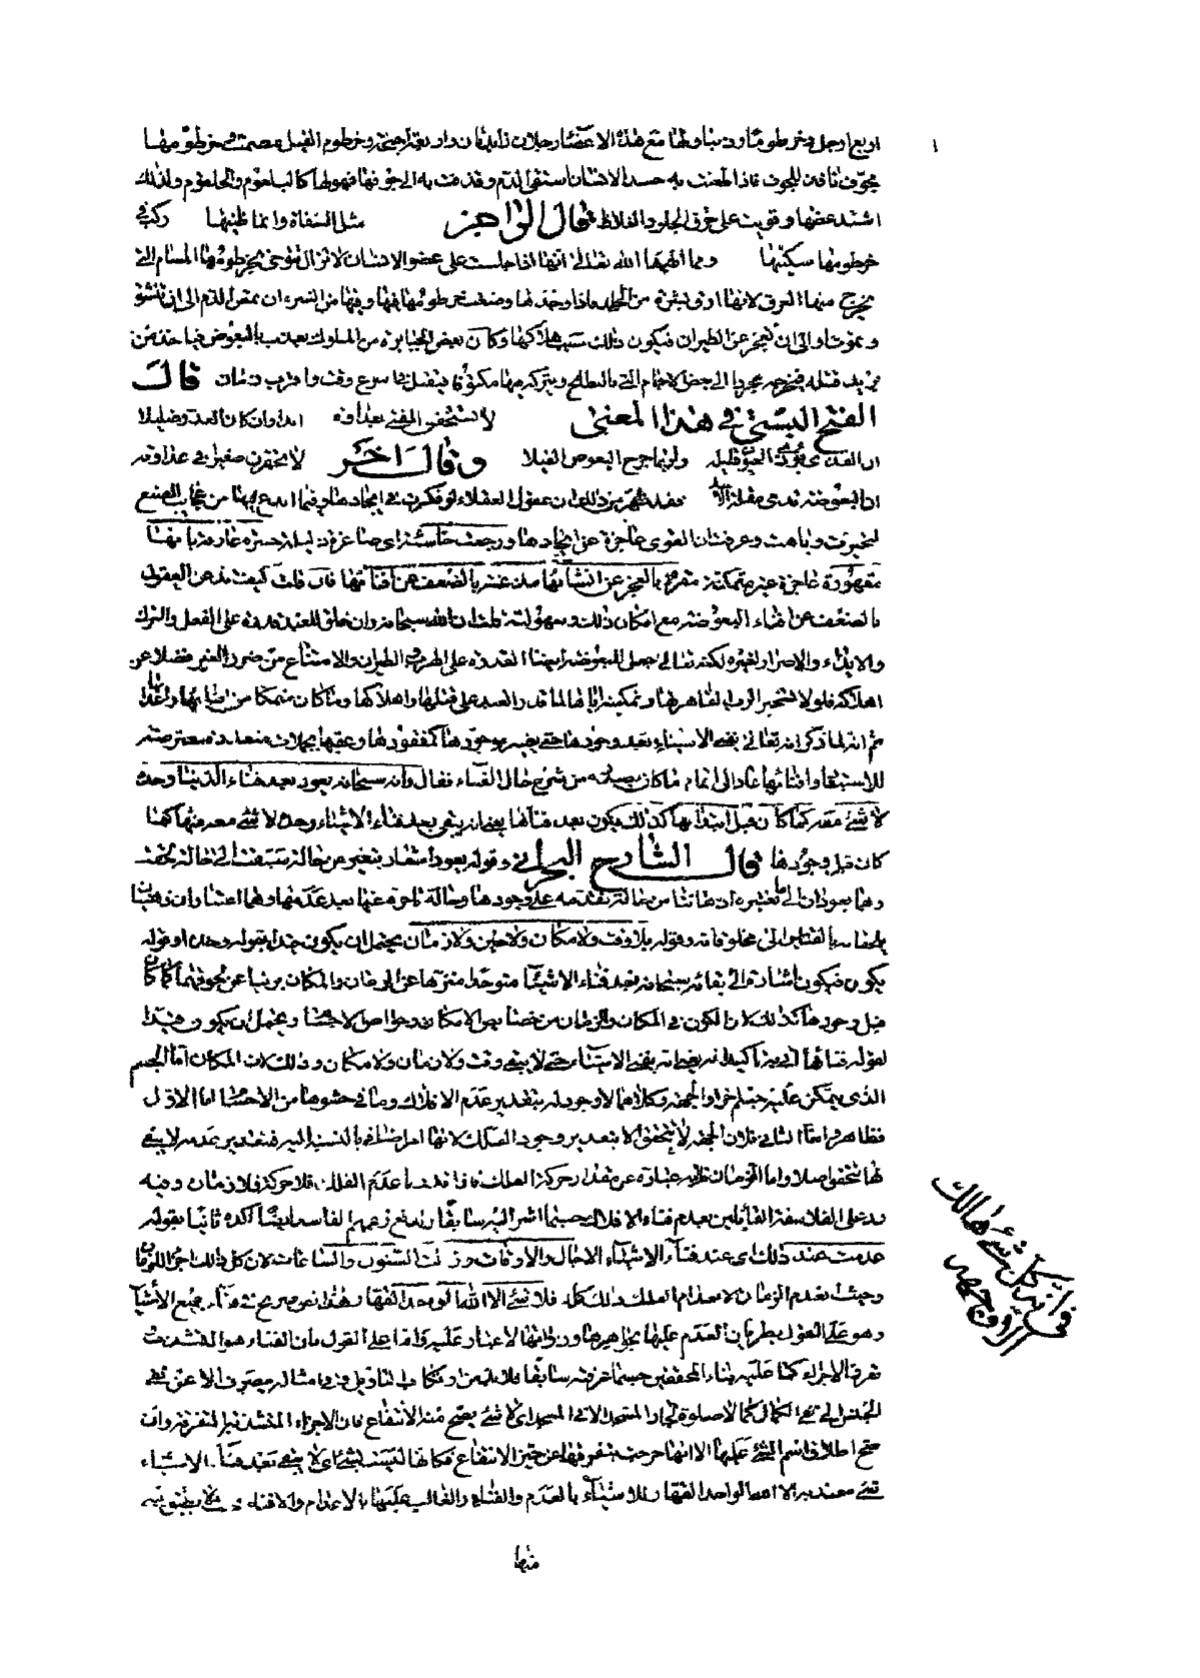 اربع ارجل وخرطوما وذنبا ولها مع هذه الاعضاء رجلان زايدتان واربعة اجنحة وخرطوم الفيل مصمت وخرطومها
مجوف نافذ للجوف فاذا طعنت به جسد الانسان استقى الدم وقذفت به الى جوفها فهو لها كالبلعوم والحلقوم ولذلك
اشتد عضها وقويت على خرق الجلود الغلاظ قال الراجز مثل السفاة دائما طنينها ركب في
خرطومها سكينها ومما الهمها الله تعالى انها اذا جلست على عضو الانسان لا تزال تتوخى بخرطومها المسام التي
يخرج منها العرق لانها ارق بشرة من الجلد فاذا وجدتها وضعت خرطومها فيها وفيها من الشره ان تمص الدم الى ان تنشق
وتموت او الى ان تعجز عن الطيران فيكون ذلك سبب هلاكها وكان بعض الجبابرة من الملوك يعذب بالبعوض فياخذ من
يريد قتله فيخرجه مجردا الى بعض الاجام التي بالبطايح ويتركه فيها مكتوفا فيقتل في اسرع وقت واقرب زمان قال
الفتح البستي في هذا المعنى لا تستخفن الفتى بعداوة ابدا وان كان العدو ضئيلا
ان القذى يؤذي العيون قليله ولربما جرح البعوض الفيلا وقال اخر لا تحقرن صغيرا في عداوته
ان البعوضة تدمي مقلة الاسد فقد ظهر من ذلك ان عقول العقلاء لو فكرت في ايجادها وفيما ابدع فيها من عجايب الصنع
لتحيرت وتاهت وعرفت ان القوى عاجزة عن ايجادها ورجعت خاسئة اي صاغرة ذليلة حسيرة عارفة بانها
مقهورة عاجزة غير متمكنة مقرة بالعجز عن انشائها مذعنة بالضعف عن افنائها فان قلت كيف تذعن العقول
بالضعف عن افناء البعوضة مع امكان ذلك وسهولته قلت ان الله سبحانه وان خلق للعبد قدرة على الفعل والترك
والايذاء والاضرار لغيره لكنه تعالى جعل للبعوضة ايضا القدرة على الهرب والطيران والامتناع من ضرر الغير فضلا عن
اهلاكه فلولا تسخير الرب القاهر لها وتمكينه اياها لما قدر العبد على قتلها واهلاكها وما كان متمكنا من افنائها واعدامها
ثم انه لما ذكر انه تعالى يفنى الاشياء بعد وجودها حتى يصير موجودها كمفقودها وعقبها بجملات متعددة معترضة
للاستبعاد افنائها عاد الى اتمام ما كان بصدده من شرح حال الفناء فقال وانه سبحانه يعود بعد فناء الدنيا وحده
لا شيء معه كما كان قبل ابتدائها كذلك يكون بعد فنائها يعني انه يبقى بعد فناء الاشياء وحده لا شيء معه منها كما
كان قبل وجودها قال الشارح البحراني وقوله يعود اشعار بتغير من حالة سبقت الى حالة لحقت
وهما يعودان الى ما تعتبره اذهاننا من حالة تقدمه على وجودها وحالة تاخره عنها بعد عدمها وهما اعتباران ذهنيان
يلحقانه بالقياس الى مخلوقاته وقوله بلا وقت ولا مكان ولا حين ولا زمان يحتمل ان يكون قيدا بقوله وحده او قوله
يكون فيكون اشارة الى بقائه سبحانه بعد فناء الاشياء متوحدا منزها عن الزمان والمكان بريئا عن لحوقهما كما كان
قبل وجودها كذلك لان الكون في المكان والزمان من خصايص الامكان وخواص الاجسام ويحتمل ان يكون قيدا
لقوله فنائها اتى به تاكيدا انه يعني انه يفني الاشياء حتى لا يبقى وقت ولا زمان ولا مكان وذلك لان المكان اما الجسم
الذي يتمكن عليه جسم اخر او الجهة وكلاهما لا وجود له بتقدير عدم الافلاك وما في حشوها من الاجسام اما الاول
فظاهر واما الثاني فلان الجهة لا تتحقق الا بتقدير وجود الفلك لانها امر اضافي بالنسبة اليه فبتقدير عدمه لا يبقى
لها تحقق اصلا واما الزمان فلانه عبارة عن مقدار حركة الفلك فاذا قدرنا عدم الفلك فلا حركة فلا زمان وفيه
رد على الفلاسفة القايلين بعدم فناء الافلاك حسبما اشير اليه سابقا ولدفع زعمهم الفاسد ايضا اكده ثانيا بقوله
عدمت عند ذلك اي عند فناء الاشياء الاجال والاوقات وزالت السنون والساعات لان كل ذلك اجزاء للزمان
وحيث تعدم الزمان لانعدام الفلك فلك كله فلا شيء الا الله الواحد القهار وهذا نص صريح في فناء جميع الاشياء
وهو على القول بطريان العدم عليها بجواهرها وذواتها لا غبار عليه واما على القول بان الفناء هو التشذب
تفرق الاجزاء كما عليه بناء المحققين حسبما عرفته سابقا فلا بد من ارتكاب التاويل في مثاله بصرف الا عن نفي
الجنس الى نفي الكمال كما لا صلوة لجار المسجد الا في المسجد اي لا شيء يصح منه الانتفاع فان الاجزاء المتشذبة المتفرقة وان
صح اطلاق اسم الشيء عليها الا انها خرجت بتفرقها عن حيز الانتفاع فكانها ليست بشيء اي لا يبقى بعد فناء الاشياء
شيء معتد به الا الله الواحد القهار للاشياء بالعدم والفناء والغالب عليها بالاعدام والافناء فلا يطيق شيء
منها
قوله تعالى كل شيء هالك الا وجهه